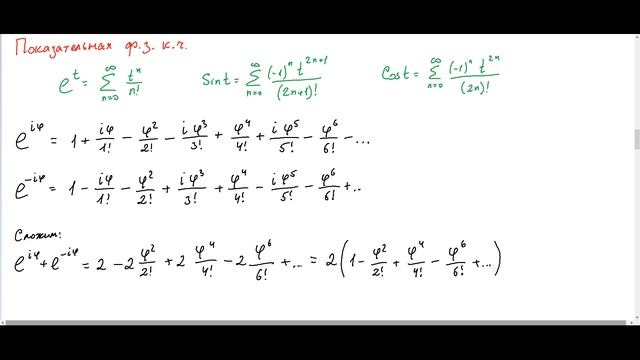 Показательная ф.з. к.ч.
e^t = ∑_{n=0}^{∞} t^n/n!   Sin t = ∑_{n=0}^{∞} (-1)^n t^{2n+1}/(2n+1)!   Cos t = ∑_{n=0}^{∞} (-1)^n t^{2n}/(2n)!
e^{iφ} = 1 + iφ/1! − φ^2/2! − iφ^3/3! + φ^4/4! + iφ^5/5! − φ^6/6! − ...
e^{-iφ} = 1 − iφ/1! − φ^2/2! + iφ^3/3! + φ^4/4! − iφ^5/5! − φ^6/6! + ..
Сложим:
e^{iφ} + e^{-iφ} = 2 − 2 φ^2/2! + 2 φ^4/4! − 2 φ^6/6! + ... = 2(1 − φ^2/2! + φ^4/4! − φ^6/6! + ...)